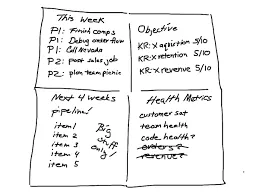 This Week
P1: Finish comps
P1: Debug order flow
P1: Call Nevada
P2: post sales job
P2: plan team picnic
Objective
KR: X aquistion 5/10
KR: X retention 5/10
KR: X revenue 5/10
Next 4 weeks
pipeline!
item 1
item 2
item 3
item 4
item 5
Big
stuff
only!
Health Metrics
customer sat
team health
code health?
orders?
revenue?